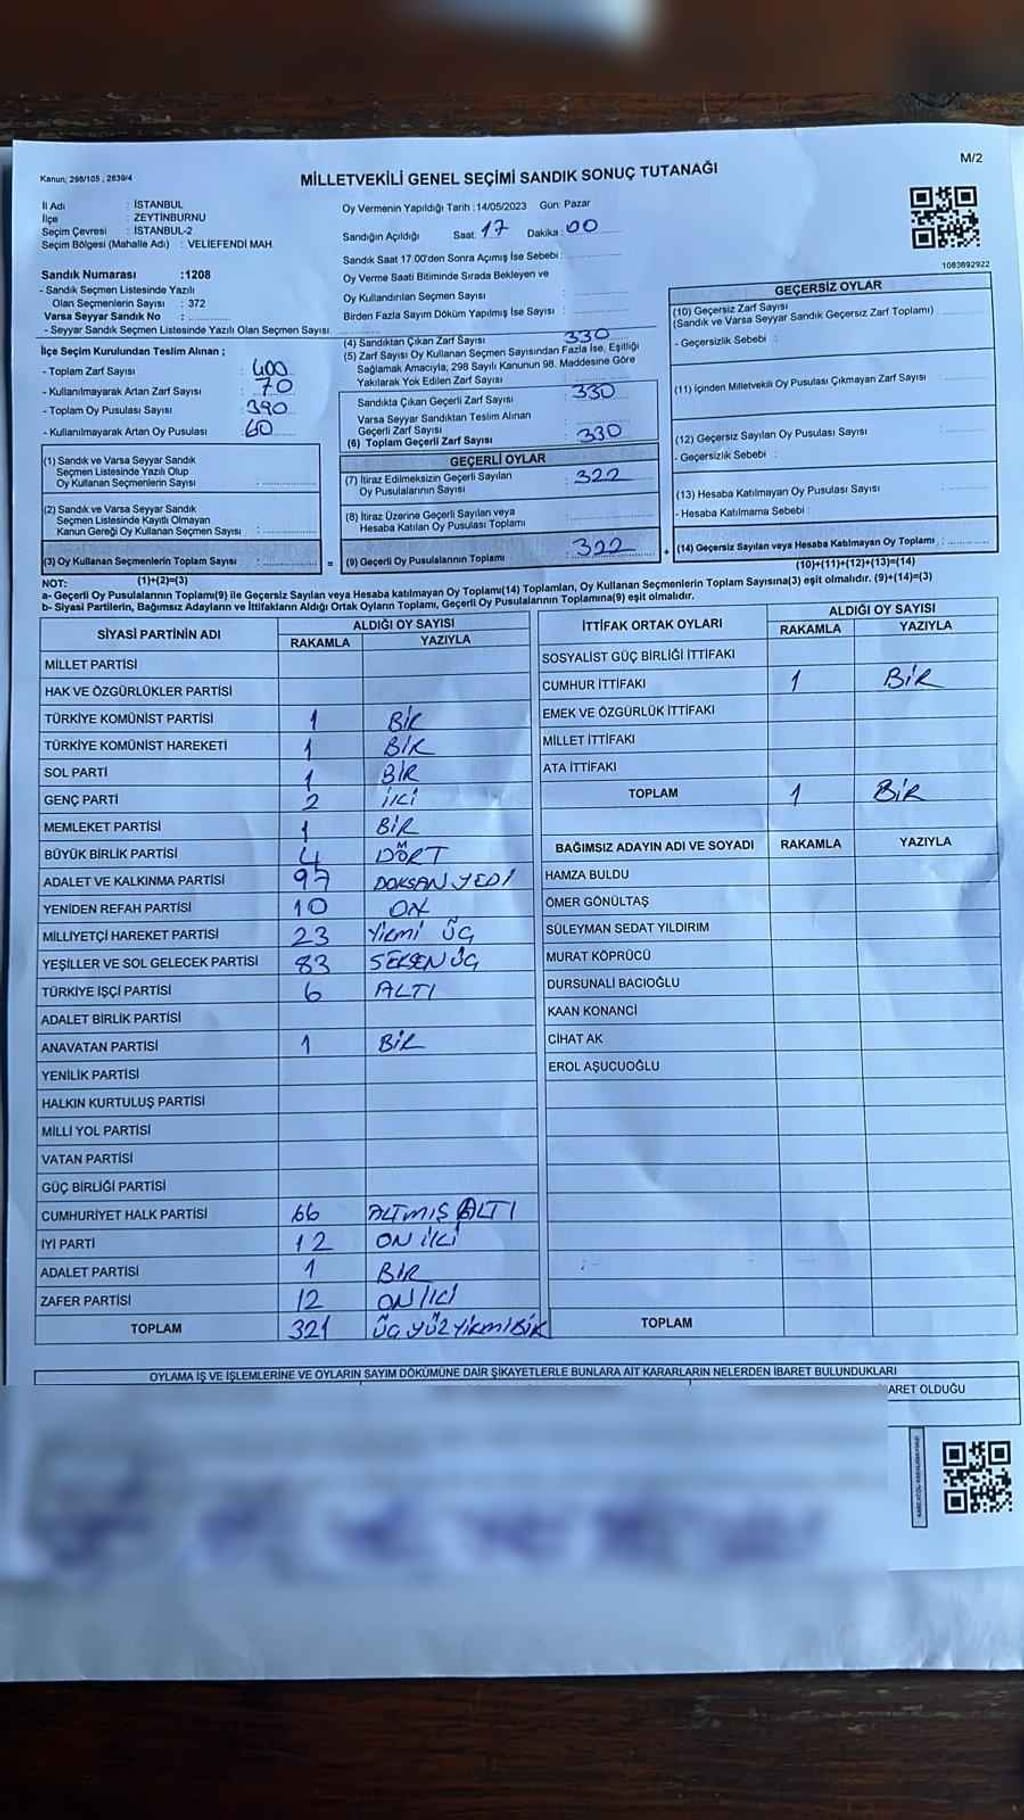 M/2
Kanun; 298/105 , 2839/4
MİLLETVEKİLİ GENEL SEÇİMİ SANDIK SONUÇ TUTANAĞI
İl Adı : İSTANBUL
İlçe : ZEYTİNBURNU
Seçim Çevresi : İSTANBUL-2
Seçim Bölgesi (Mahalle Adı) : VELİEFENDİ MAH.
Oy Vermenin Yapıldığı Tarih :14/05/2023 Gün: Pazar
Sandığın Açıldığı Saat: 17 Dakika: 00
Sandık Saat 17:00'den Sonra Açımış İse Sebebi :
Oy Verme Saati Bitiminde Sırada Bekleyen ve
Oy Kullandırılan Seçmen Sayısı :
Birden Fazla Sayım Döküm Yapılmış İse Sayısı :
1083692922
Sandık Numarası :1208
- Sandık Seçmen Listesinde Yazılı
Olan Seçmenlerin Sayısı : 372
Varsa Seyyar Sandık No :
- Seyyar Sandık Seçmen Listesinde Yazılı Olan Seçmen Sayısı
İlçe Seçim Kurulundan Teslim Alınan ;
- Toplam Zarf Sayısı : 400
- Kullanılmayarak Artan Zarf Sayısı : 70
- Toplam Oy Pusulası Sayısı : 390
- Kullanılmayarak Artan Oy Pusulası : 60
(1) Sandık ve Varsa Seyyar Sandık
Seçmen Listesinde Yazılı Olup
Oy Kullanan Seçmenlerin Sayısı :
(2) Sandık ve Varsa Seyyar Sandık
Seçmen Listesinde Kayıtlı Olmayan
Kanun Gereği Oy Kullanan Seçmen Sayısı :
(3) Oy Kullanan Seçmenlerin Toplam Sayısı :
(1)+(2)=(3)
(4) Sandıktan Çıkan Zarf Sayısı : 330
(5) Zarf Sayısı Oy Kullanan Seçmen Sayısından Fazla İse, Eşitliği
Sağlamak Amacıyla, 298 Sayılı Kanunun 98. Maddesine Göre
Yakılarak Yok Edilen Zarf Sayısı :
Sandıkta Çıkan Geçerli Zarf Sayısı : 330
Varsa Seyyar Sandıktan Teslim Alınan
Geçerli Zarf Sayısı :
(6) Toplam Geçerli Zarf Sayısı : 330
GEÇERLİ OYLAR
(7) İtiraz Edilmeksizin Geçerli Sayılan
Oy Pusulalarının Sayısı : 322
(8) İtiraz Üzerine Geçerli Sayılan veya
Hesaba Katılan Oy Pusulası Toplamı :
= (9) Geçerli Oy Pusulalarının Toplamı : 322 +
GEÇERSİZ OYLAR
(10) Geçersiz Zarf Sayısı
(Sandık ve Varsa Seyyar Sandık Geçersiz Zarf Toplamı) :
- Geçersizlik Sebebi :
(11) İçinden Milletvekili Oy Pusulası Çıkmayan Zarf Sayısı :
(12) Geçersiz Sayılan Oy Pusulası Sayısı :
- Geçersizlik Sebebi :
(13) Hesaba Katılmayan Oy Pusulası Sayısı :
- Hesaba Katılmama Sebebi :
(14) Geçersiz Sayılan veya Hesaba Katılmayan Oy Toplamı :
(10)+(11)+(12)+(13)=(14)
NOT:
a- Geçerli Oy Pusulalarının Toplamı(9) ile Geçersiz Sayılan veya Hesaba katılmayan Oy Toplamı(14) Toplamları, Oy Kullanan Seçmenlerin Toplam Sayısına(3) eşit olmalıdır. (9)+(14)=(3)
b- Siyasi Partilerin, Bağımsız Adayların ve İttifakların Aldığı Ortak Oyların Toplamı, Geçerli Oy Pusulalarının Toplamına(9) eşit olmalıdır.
SİYASİ PARTİNİN ADI ALDIĞI OY SAYISI
RAKAMLA YAZIYLA
MİLLET PARTİSİ
HAK VE ÖZGÜRLÜKLER PARTİSİ
TÜRKİYE KOMÜNİST PARTİSİ 1 BİR
TÜRKİYE KOMÜNİST HAREKETİ 1 BİR
SOL PARTİ 1 BİR
GENÇ PARTİ 2 İKİ
MEMLEKET PARTİSİ 1 BİR
BÜYÜK BİRLİK PARTİSİ 4 DÖRT
ADALET VE KALKINMA PARTİSİ 97 DOKSAN YEDİ
YENİDEN REFAH PARTİSİ 10 ON
MİLLİYETÇİ HAREKET PARTİSİ 23 YİRMİ ÜÇ
YEŞİLLER VE SOL GELECEK PARTİSİ 83 SEKSEN ÜÇ
TÜRKİYE İŞÇİ PARTİSİ 6 ALTI
ADALET BİRLİK PARTİSİ
ANAVATAN PARTİSİ 1 BİR
YENİLİK PARTİSİ
HALKIN KURTULUŞ PARTİSİ
MİLLİ YOL PARTİSİ
VATAN PARTİSİ
GÜÇ BİRLİĞİ PARTİSİ
CUMHURİYET HALK PARTİSİ 66 ALTMIŞ ALTI
İYİ PARTİ 12 ON İKİ
ADALET PARTİSİ 1 BİR
ZAFER PARTİSİ 12 ON İKİ
TOPLAM 321 ÜÇ YÜZ YİRMİ BİR
İTTİFAK ORTAK OYLARI ALDIĞI OY SAYISI
RAKAMLA YAZIYLA
SOSYALİST GÜÇ BİRLİĞİ İTTİFAKI
CUMHUR İTTİFAKI 1 BİR
EMEK VE ÖZGÜRLÜK İTTİFAKI
MİLLET İTTİFAKI
ATA İTTİFAKI
TOPLAM 1 BİR
BAĞIMSIZ ADAYIN ADI VE SOYADI RAKAMLA YAZIYLA
HAMZA BULDU
ÖMER GÖNÜLTAŞ
SÜLEYMAN SEDAT YILDIRIM
MURAT KÖPRÜCÜ
DURSUNALİ BACIOĞLU
KAAN KONANCİ
CİHAT AK
EROL AŞUCUOĞLU
TOPLAM
OYLAMA İŞ VE İŞLEMLERİNE VE OYLARIN SAYIM DÖKÜMÜNE DAİR ŞİKAYETLERLE BUNLARA AİT KARARLARIN NELERDEN İBARET BULUNDUKLARI
ARET OLDUĞU